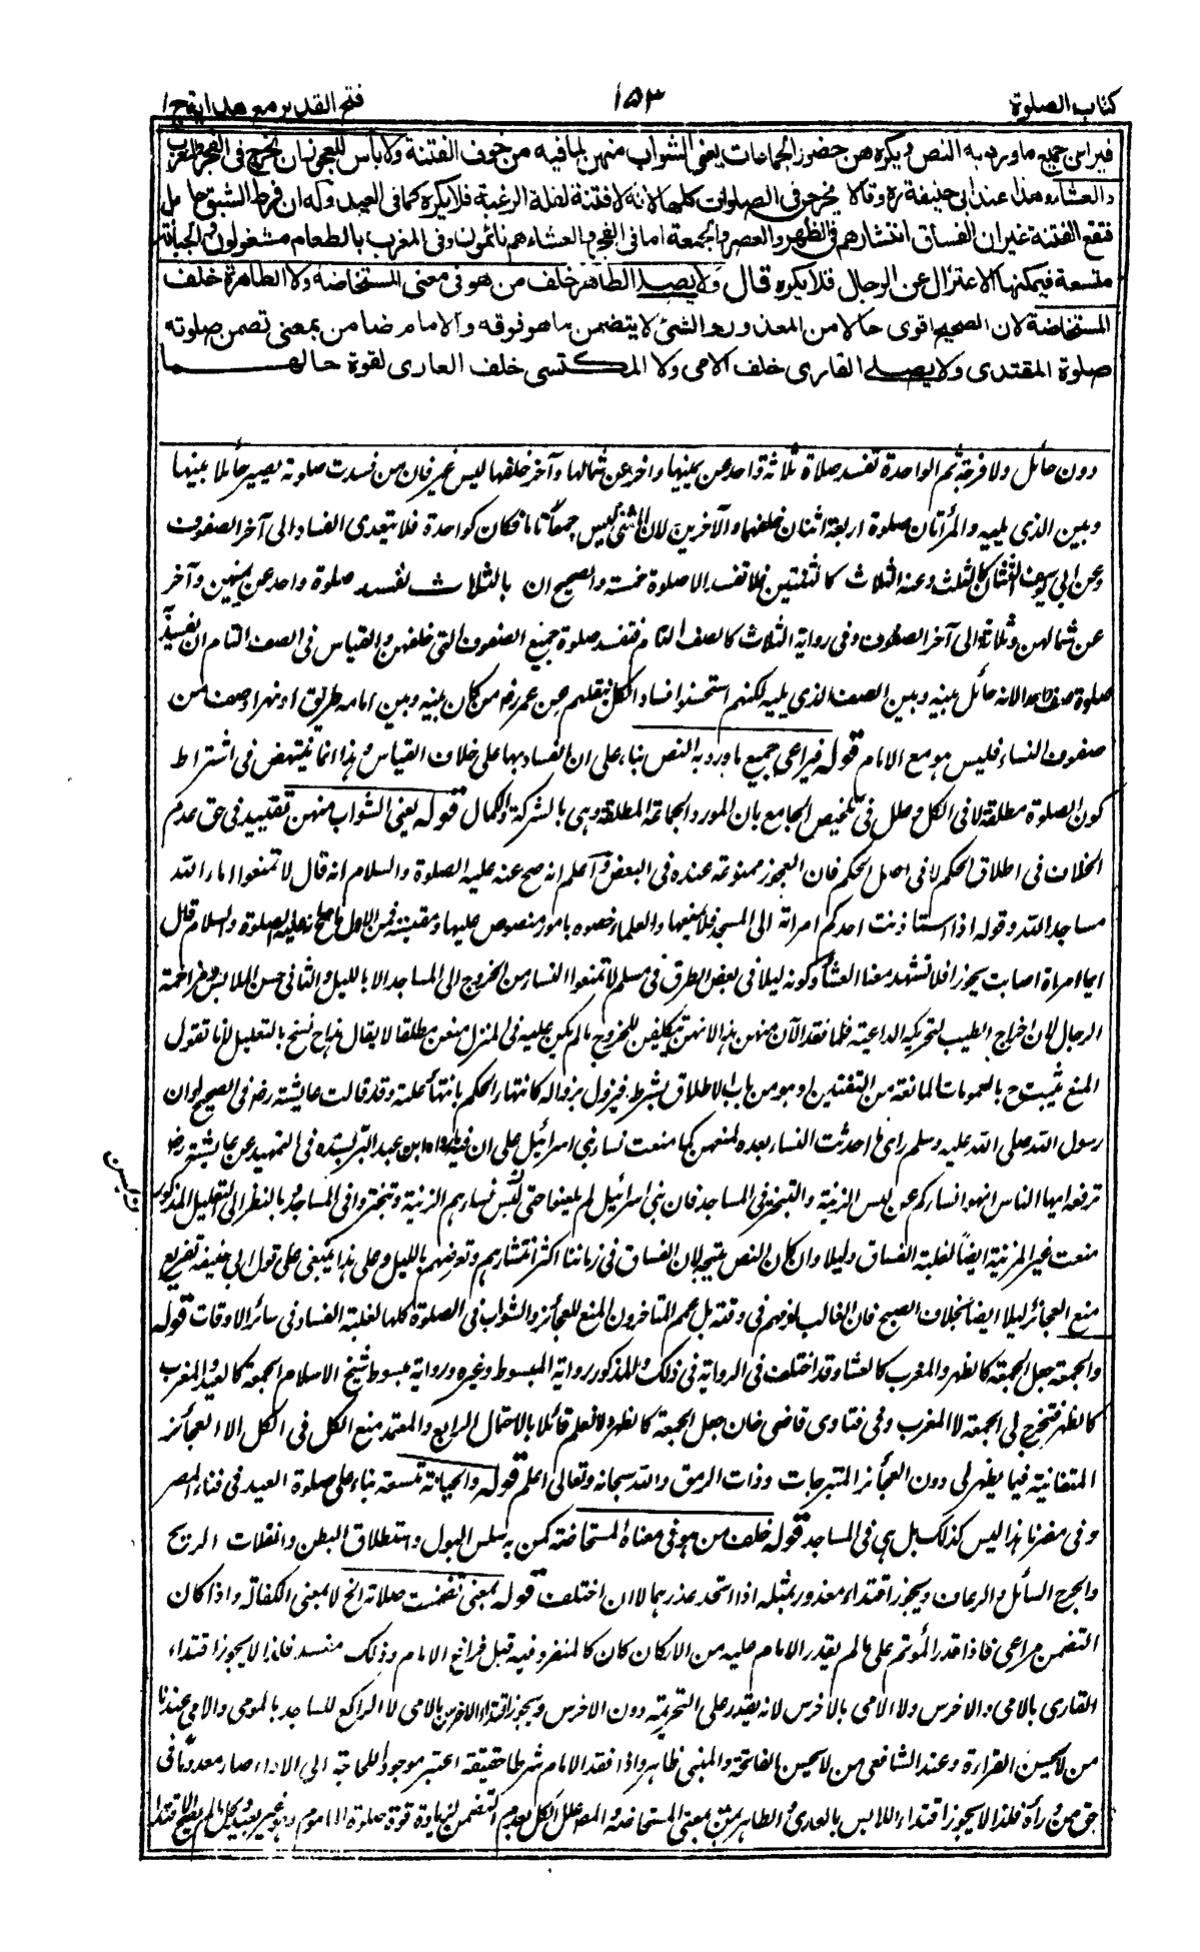 كتاب الصلوة
١٥٣
فتح القدير مع هداية ج ١
فيراعى جميع ما ورد به النص ويكره لهن حضور الجماعات يعنى الشواب منهن لما فيه من خوف الفتنة ولا بأس للعجوز ان تخرج فى الفجر والمغرب
والعشاء وهذا عند ابى حنيفة ره وقالا يخرجن فى الصلوات كلها لانه لا فتنة لقلة الرغبة فلا يكره كما فى العيد وله ان فرط الشبق حامل
فتقع الفتنة غير ان الفساق انتشارهم فى الظهر والعصر والجمعة اما فى الفجر والعشاء هم نائمون وفى المغرب بالطعام مشغولون والجبانة
متسعة فيمكنها الاعتزال عن الرجال فلا يكره قال ولا يصلى الطاهر خلف من هو فى معنى المستحاضة ولا الطاهرة خلف
المستحاضة لان الصحيح اقوى حالا من المعذور والشئ لا يتضمن ما هو فوقه والامام ضامن بمعنى تضمن صلوته
صلوة المقتدى ولا يصلى القارى خلف الامى ولا المكتسى خلف العارى لقوة حالهما
دون حائل ولا فرجة ثم الواحدة تفسد صلاة ثلاثة واحد عن يمينها وآخر عن شمالها وآخر خلفها ليس غير فان من فسدت صلوته يصير حائلا بينها
وبين الذى يليه والمرأتان صلوة اربعة اثنان خلفهما والآخرين لان المثنى ليس جمعا تاما فكان كواحدة فلا يتعدى الفساد الى آخر الصفوف
وعن ابى يوسف الثنتان كالثلث وعنه الثلاث كالثنتين فلا تفسد الا صلوة خمسة والصحيح ان بالثلاث تفسد صلوة واحد عن يمينهن وآخر
عن شمالهن وثلاثة الى آخر الصفوف وفى رواية الثلاث كالصف التام فتفسد صلوة جميع الصفوف التى خلفهن والقياس فى الصف التام ان تفسد به
صلوة صف واحد لانه حائل بينه وبين الصف الذى يليه لكنهم استحسنوا فساد الكل بنقلهم عن عمر رض من كان بينه وبين امامه طريق او نهر او صف من
صفوف النساء فليس هو مع الامام قوله فيراعى جميع ما ورد به النص بناء على ان الفساد بها على خلاف القياس وهذا انما ينتهض فى اشتراط
كون الصلوة مطلقة لا فى الكل وعلل فى تلخيص الجامع بان المورد الجماعة المطلقة وهى بالشركة والكمال قوله يعنى الشواب منهن تقييد فى حق عدم
الخلاف فى اطلاق الحكم لا فى اصل الحكم فان العجوز ممنوعة عنده فى البعض واعلم انه صح عنه عليه الصلوة والسلام انه قال لا تمنعوا اماء الله
مساجد الله وقوله اذا استاذنت احدكم امرأته الى المسجد فلا يمنعها والعلماء خصوه بامور منصوص عليها ومقيسة فمن الاول ما صح انه عليه الصلوة والسلام قال
ايما امرأة اصابت بخورا فلا تشهد معنا العشاء وكونه ليلا فى بعض الطرق فى مسلم لا تمنعوا النساء من الخروج الى المساجد الا بالليل والثانى حسن الملابس ومزاحمة
الرجال لان اخراج الطيب لتحريكه الداعية فلما فقد الآن منهن هذا لانهن يتكلفن للخروج ما لم يكن عليه فى المنزل منعن مطلقا لا يقال هذا ح نسخ بالتعليل لانا نقول
المنع يثبت ح بالعمومات المانعة من التفتين او هو من باب الاطلاق بشرط فيزول بزواله كانتهاء الحكم بانتهاء علته وقد قالت عائشة رض فى الصحيح لو ان
رسول الله صلى الله عليه وسلم رأى ما احدثت النساء بعده لمنعهن كما منعت نساء بنى اسرائيل على ان فيه ما رواه ابن عبد البر بسنده فى التمهيد عن عائشة رض
ترفعه ايها الناس انهوا نساءكم عن لبس الزينة والتبختر فى المساجد فان بنى اسرائيل لم يلعنوا حتى لبس نساؤهم الزينة وتبختروا فى المساجد وبالنظر الى التعليل المذكور
منعت غير المزينة ايضا لغلبة الفساق وليلا وان كان النص يبيحه لان الفساق فى زماننا اكثر انتشارهم وتعرضهم بالليل وعلى هذا ينبغى على قول ابى حنيفة تفريع
منع العجائز ليلا ايضا بخلاف الصبح فان الغالب نومهم فى وقته بل عمم المتاخرون المنع للعجائز والشواب فى الصلوة كلها لغلبة الفساد فى سائر الاوقات قوله
والجمعة جعل الجمعة كالظهر والمغرب كالعشاء وقد اختلف فى الرواية فى ذلك والمذكور رواية المبسوط وغيره ورواية مبسوط شيخ الاسلام الجمعة كالعيد والمغرب
كالظهر فتخرج فى الجمعة لا المغرب وفى فتاوى قاضى خان جعل الجمعة كالظهر ولا نعلم قائلا بالاحتمال الرابع والمعتمد منع الكل فى الكل الا العجائز
المتفانية فيما يظهر لى دون العجائز المتبرجات وذات الرمق والله سبحانه وتعالى اعلم قوله والجبانة متسعة بناء على صلوة العيد فى فناء المصر
وفى مصرنا هذا ليس كذلك بل هى فى المساجد قوله خلف من هو فى معناه المستحاضة كمن به سلس البول واستطلاق البطن وانفلات الريح
والجرح السائل والرعاف ويجوز اقتداء معذور بمثله اذا اتحد عذرهما لا ان اختلف قوله بمعنى تضمنت صلاته الخ لا بمعنى الكفالة واذا كان
التضمن مراعى فاذا قدر المؤتم على ما لم يقدر الامام عليه من الاركان كان كالمنفرد فيه قبل فراغ الامام وذلك مفسد فلذا لا يجوز اقتداء
القارى بالامى والاخرس ولا الامى بالاخرس لانه يقدر على التحريمة دون الاخرس ويجوز اقتداء الاخرس بالامى لا الراكع الساجد بالمومى والامى عندنا
من لا يحسن القراءة وعند الشافعى من لا يحسن الفاتحة والمبنى ظاهر واذا فقد الامام شرطا حقيقة اعتبر موجودا للحاجة الى الاداء صار معدوما فى
حق من وراءه فلذا لا يجوز اقتداء اللابس بالعارى والطاهر بمن بمعنى المستحاضة